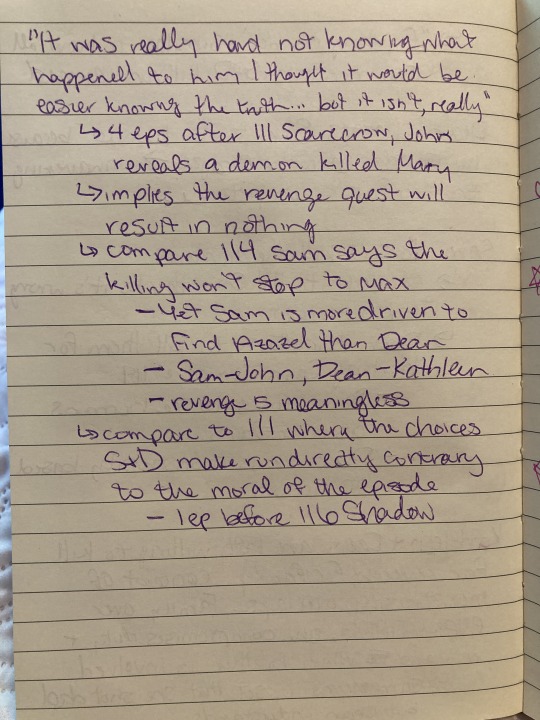 "It was really hard not knowing what
happened to him I thought it would be
easier knowing the truth... but it isn't, really"
↳ 4 eps after 111 Scarecrow, John
reveals a demon killed Mary
↳ implies the revenge quest will
result in nothing
↳ compare 114 Sam says the
killing won't stop to Max
- Yet Sam is more driven to
find Azazel than Dean
- Sam-John, Dean-Kathleen
- revenge is meaningless
↳ compare to 111 where the choices
S+D make run directly contrary
to the moral of the episode
- 1 ep before 116 Shadow